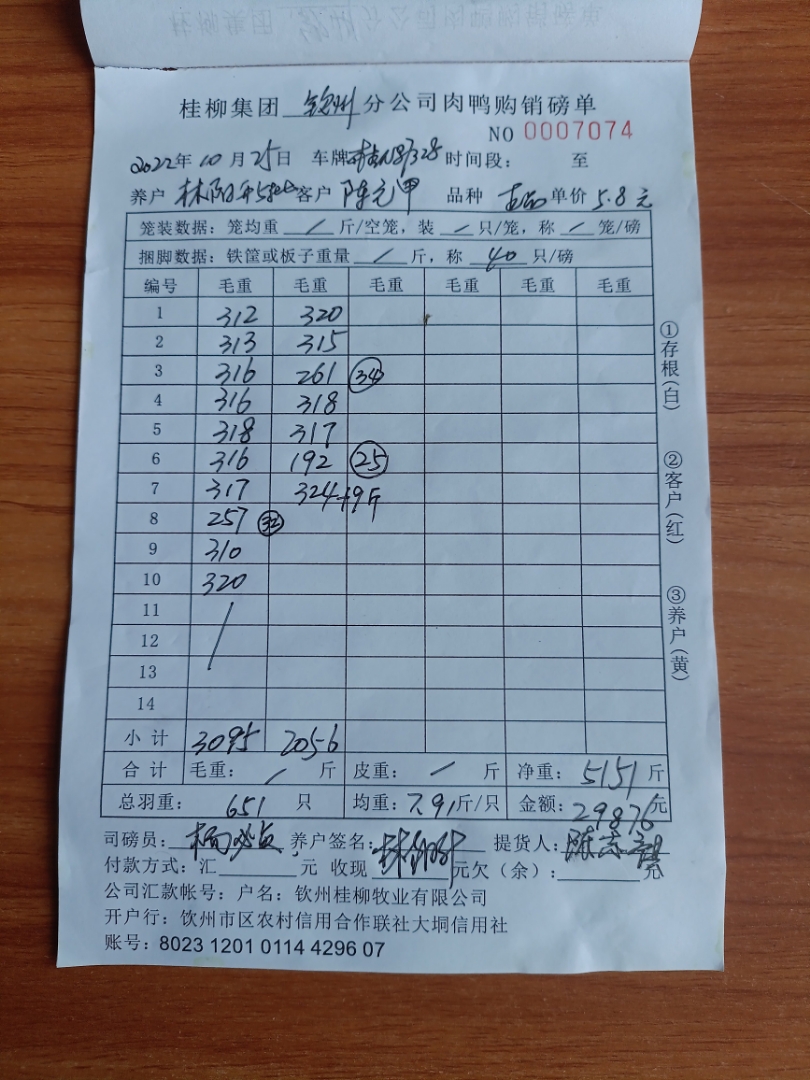 桂柳集团 钦州 分公司肉鸭购销磅单
NO 0007074
2022年10月25日 车牌 时间段： 至
养户 林阳 客户 陈元甲 品种 单价 5.8 元
笼装数据：笼均重 / 斤/空笼，装 / 只/笼，称 / 笼/磅
捆脚数据：铁筐或板子重量 / 斤，称 40 只/磅
编号 毛重 毛重 毛重 毛重 毛重 毛重
1 312 320
2 313 315
3 316 261 34
4 316 318
5 318 317
6 316 192 25
7 317 324 +9斤
8 257 32
9 310
10 320
11 /
12
13
14
小计 3095 2056
合计 毛重： / 斤 皮重： / 斤 净重：5151斤
总羽重： 651 只 均重：7.91斤/只 金额：29876元
①存根(白)
②客户(红)
③养户(黄)
司磅员： 养户签名： 提货人：
付款方式：汇 元 收现 元欠（余）： 元
公司汇款帐号：户名：钦州桂柳牧业有限公司
开户行：钦州市区农村信用合作联社大垌信用社
账号：8023 1201 0114 4296 07